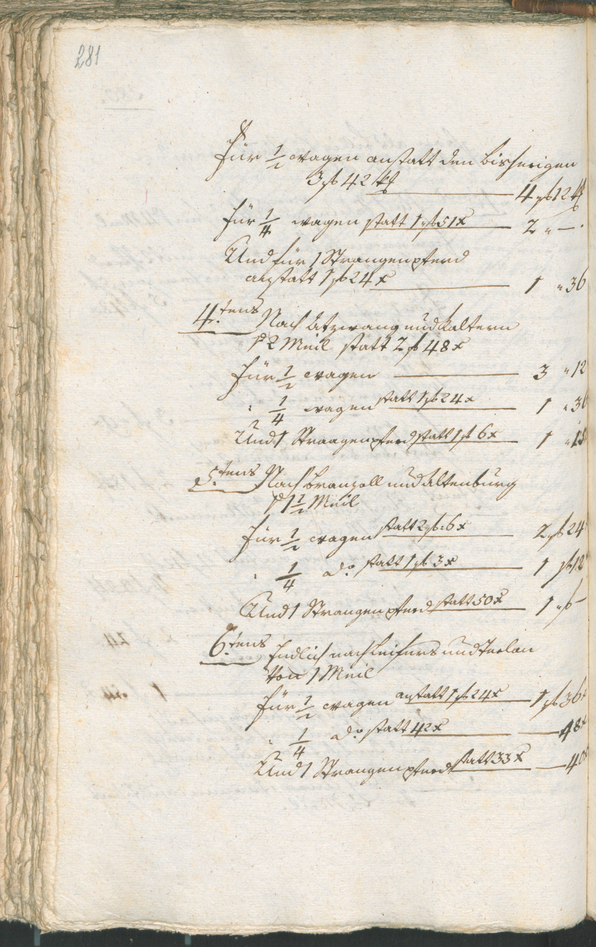 281
Für 1/2 Wagen anstatt den bisherigen
3 f 42 xr — 4 f 12 xr
für 1/4 Wagen statt 1 f 51 x — 2 " —
Und für 1 Strangenpferd
anstatt 1 f 24 x — 1 " 36
4.tens Nach Atzwang und Kaltern
p 2 Meil statt 2 f 48 x
für 1/2 Wagen — 3 " 12
" 1/4 Wagen statt 1 f 24 x — 1 " 36
Und 1 Strangenpferd statt 1 f 6 x — 1 "
5.tens Nach Branzoll und Altenburg
p 1 1/2 Meil
für 1/2 Wagen statt 2 f 6 x — 2 f 24
" 1/4 do statt 1 f 3 x — 1 f 12
Und 1 Strangenpferd statt 50 x — 1 f —
6.tens Endlich nach Leifers und Terlan
von 1 Meil
für 1/2 Wagen anstatt 1 f 24 x — 1 f 36
" 1/4 do statt 42 x — 48 x
Und 1 Strangenpferd statt 33 x — 40